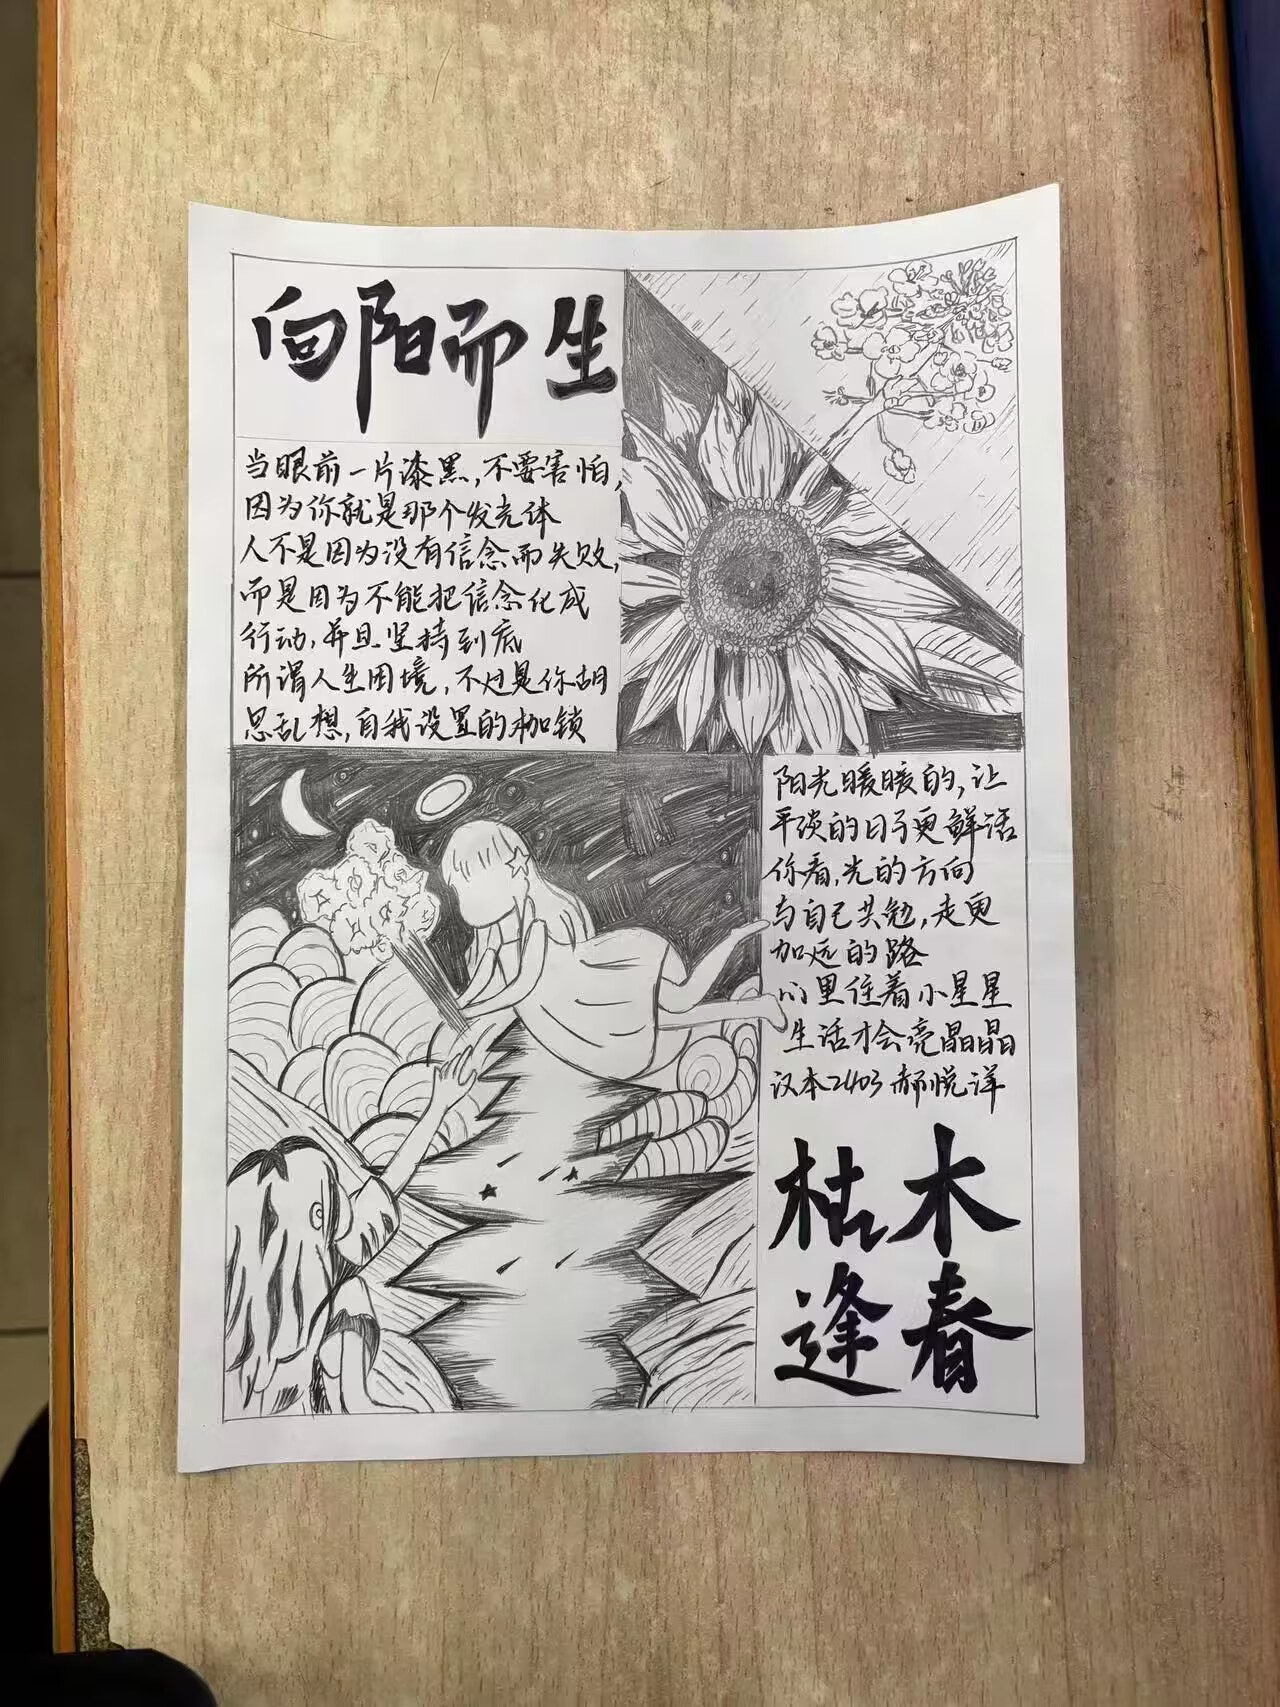 向阳而生
当眼前一片漆黑,不要害怕,
因为你就是那个发光体
人不是因为没有信念而失败,
而是因为不能把信念化成
行动,并且坚持到底
所谓人生困境,不过是你胡
思乱想,自我设置的枷锁
阳光暖暖的,让
平淡的日子更鲜活
你看,光的方向
与自己共勉,走更
加远的路
心里住着小星星
生活才会亮晶晶
汉本2403 郝悦洋
枯木
逢春